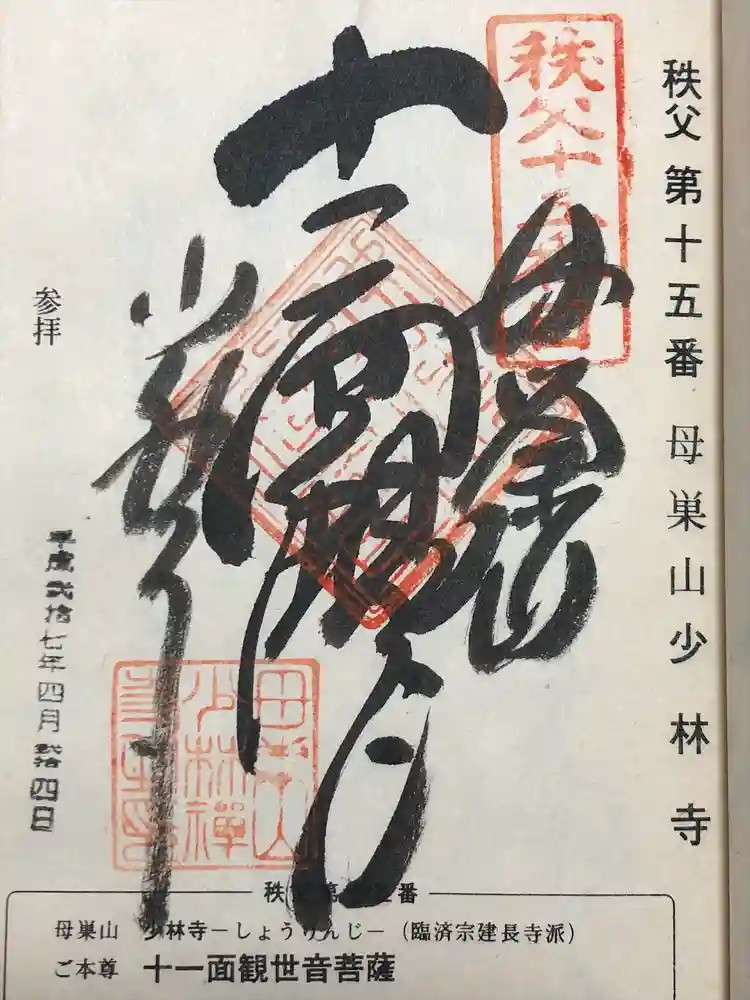 秩父 第十五番 母巣山少林寺
秩父十五番
母巣山
十一面観音
少林寺
参拝
平成弐拾七年四月弐拾四日
母巣山
少林禅
秩父第十五番
母巣山 少林寺－しょうりんじ－（臨済宗建長寺派）
ご本尊 十一面観世音菩薩